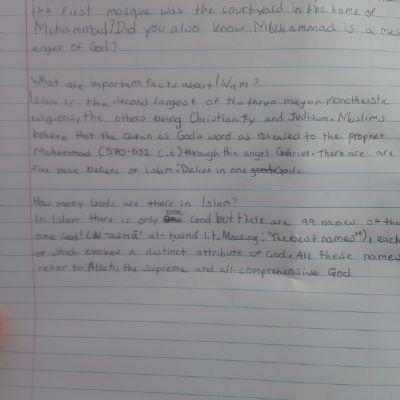 the first mosque was the courtyard in the home of
Muhammad? Did you also know Muhammad is a mess
enger of God?
What are important facts about Islam?
Islam is the second largest of the three mayor monotheistic
religions, the others being Christianity and Judisum. Muslims
believe that the Quran is God's word as revealed to the prophet
Muhammad (570-632 C.E) through the angel Gabriel. There are are
five basic beliefs of Islam: Belief in one God.
How many Gods are there in Islam?
In Islam there is only one God but there are 99 names of the
one God! (Al-asmā' al-ḥusná lit. Meaning: "The best names"), each
of which evokes a distinct attribute of God. All these names
refer to Allah, the supreme and all-comprehensive God